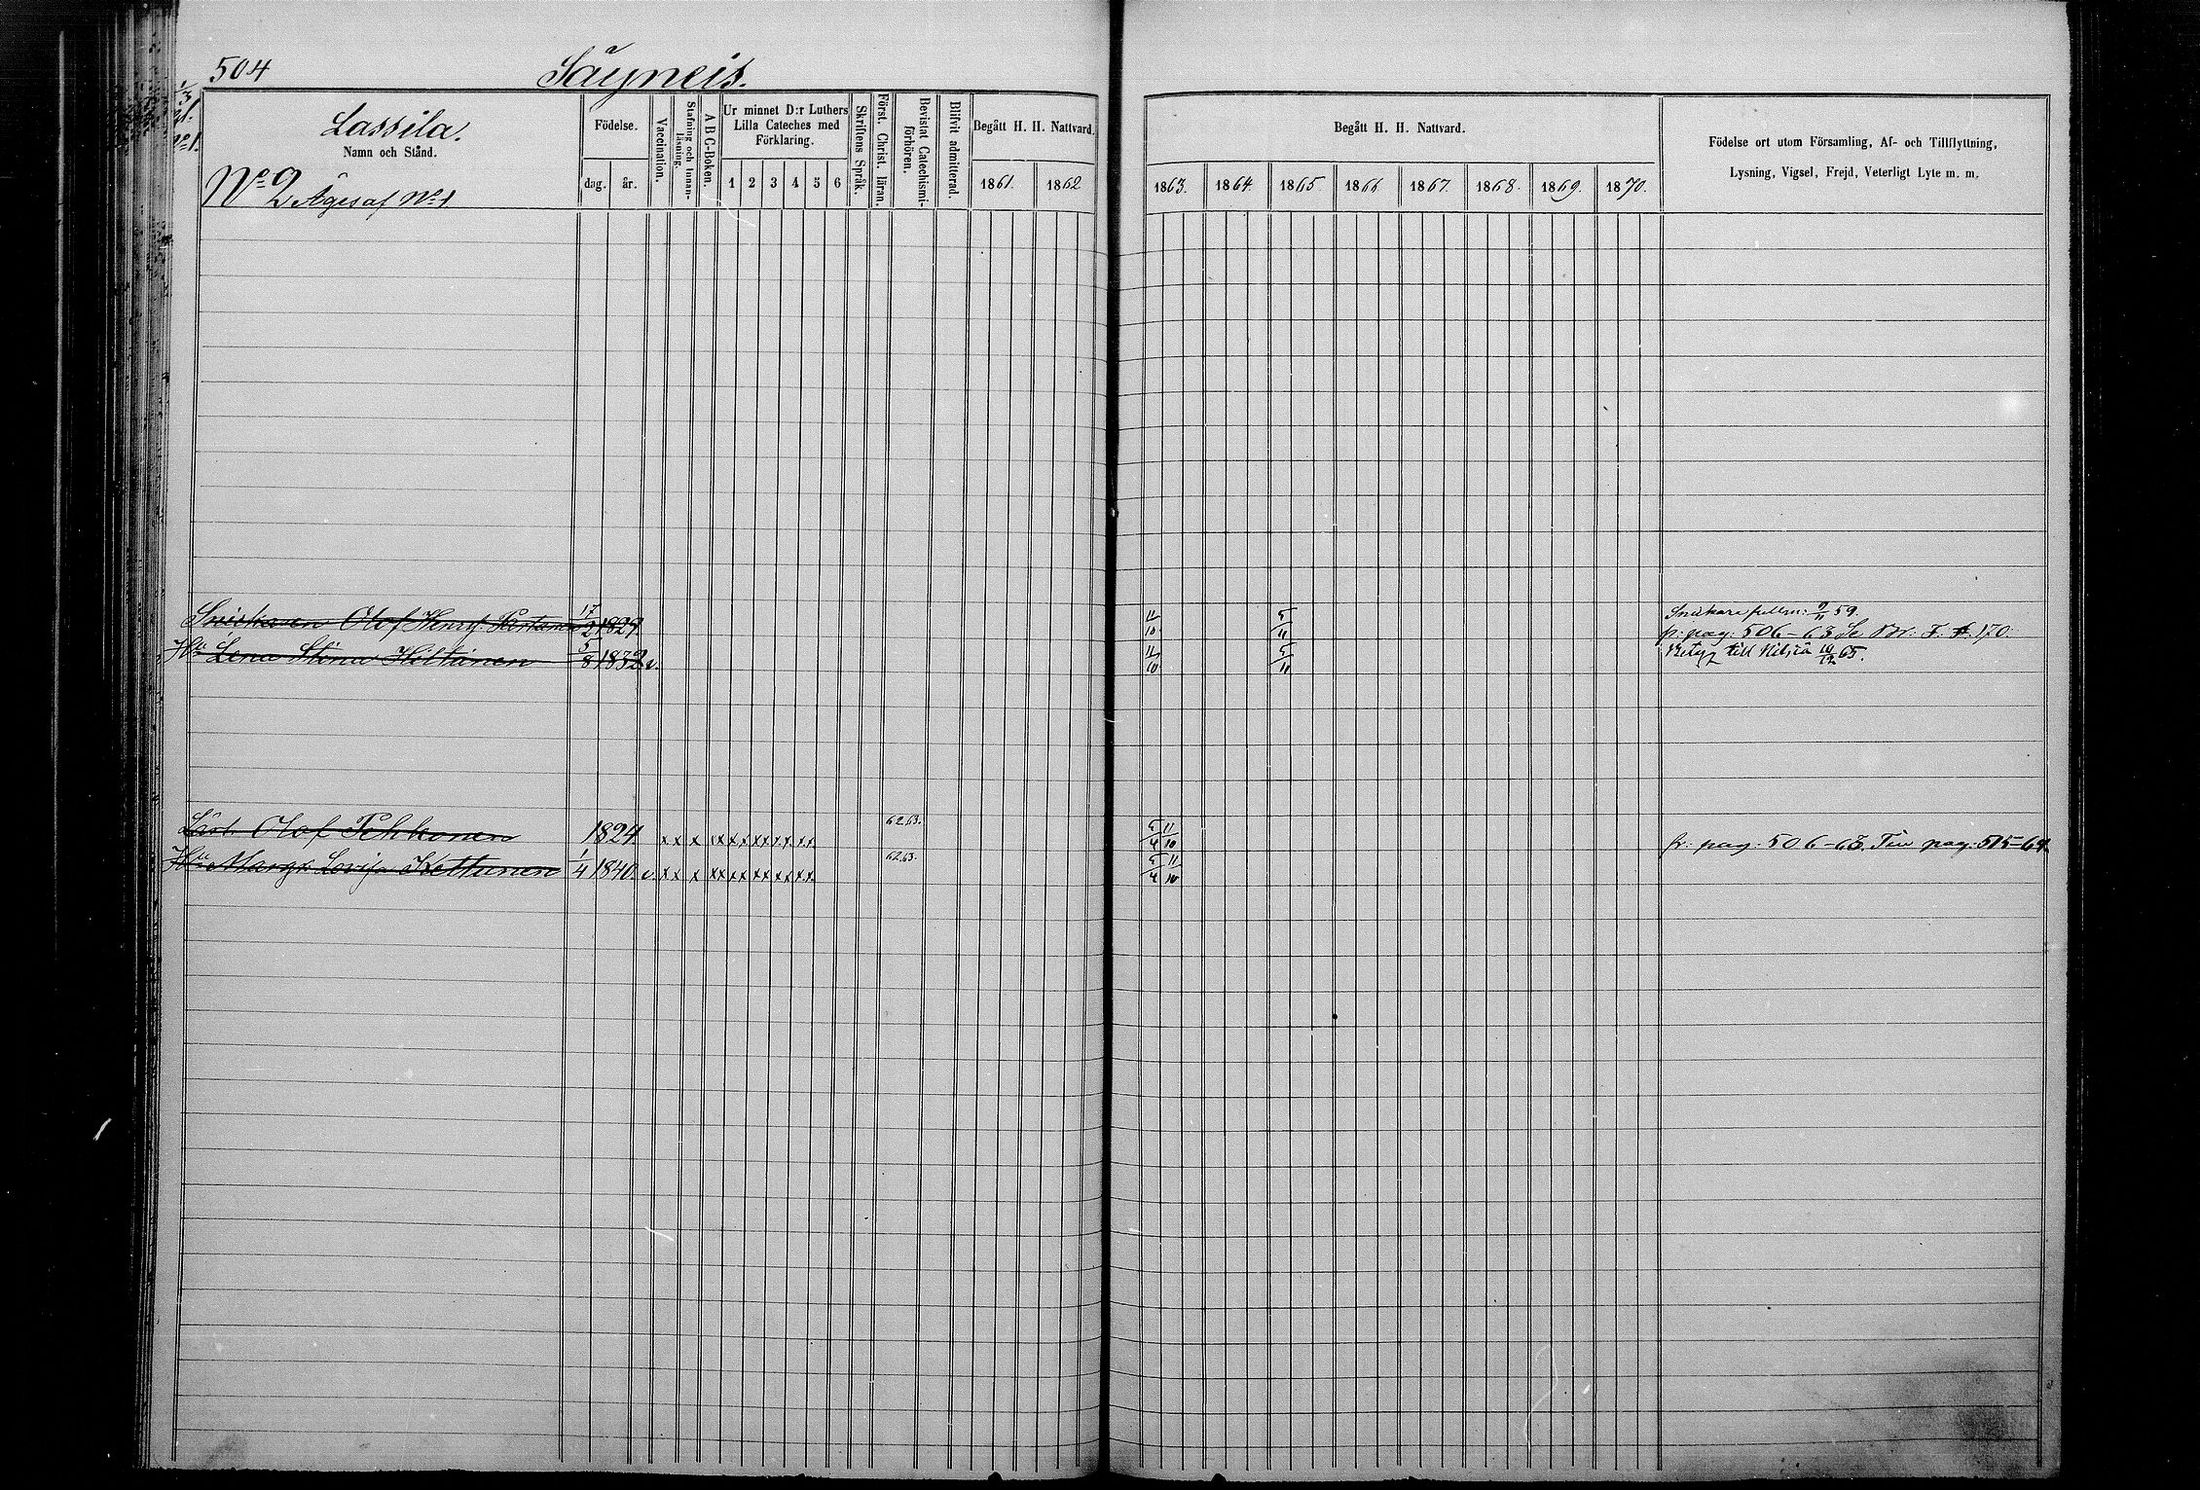 504
Säyneis.
Lassila.
Namn och Stånd.
No 2 Äges af No 1
Födelse.
dag. år.
Vaccination.
Stafning och Innanläsning.
A B C-Boken.
Ur minnet D:r Luthers
Lilla Cateches med
Förklaring.
1 2 3 4 5 6
Skriftens Språk.
Först. Christ. läran.
Bevistat Catechismiförhören.
Blifvit admitterad.
Begått H. H. Nattvard.
1861. 1862
Begått H. H. Nattvard.
1863. 1864. 1865. 1866. 1867. 1868. 1869. 1870.
Födelse ort utom Församling, Af- och Tillflyttning,
Lysning, Vigsel, Frejd, Veterligt Lyte m. m.
Olof Henr. 17/2 1829. 11/10 5/11 59.
fr: pag: 506-63 170.
Hu Lena Stina Hiltunen 5/8 1832 v. 11/10 5/11 Betyg till Nilsiä 65.
Olof Pehkonen 1824. x x x xx xx xx xx xx 62.63. 5/4 11/10 fr: pag: 506-63. pag: 515-64.
Hu Margr. Lovisa Kettunen 1/4 1840. v. x x x xx xx xx xx xx 62.63. 5/4 11/10